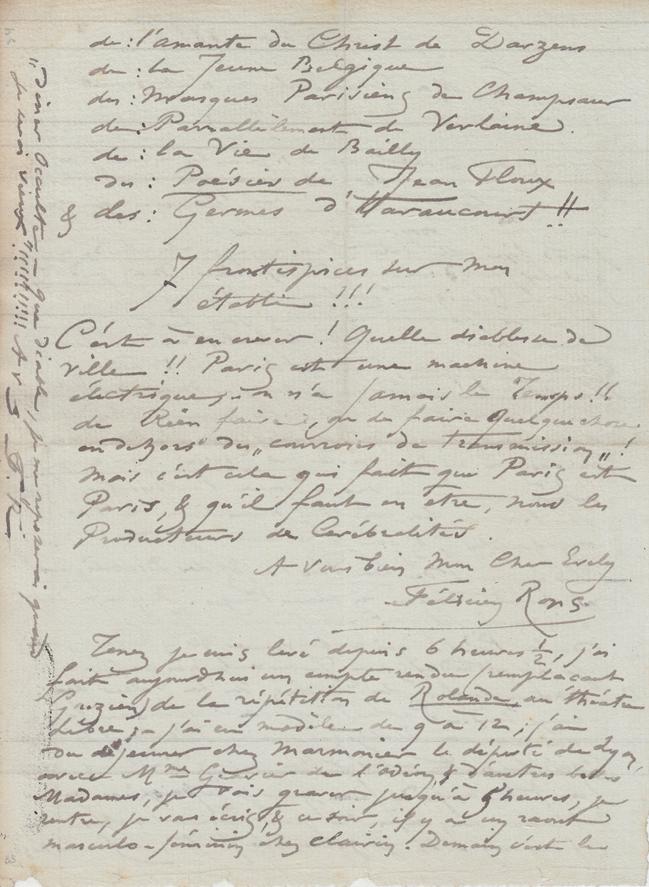 de : l'amante du Christ de Darzens
de : la Jeune Belgique
des : Masques Parisiens de Champsaur
de : Parallèlement de Verlaine.
de : la Vie de Bailly
des : Poésies de Jean Floux
& des : Germes d'Haraucourt !!
7 frontispices sur mon
établi !!!
C'est à en crever ! Quelle diablesse de
ville !! Paris est une machine
électrique, on n'a jamais le Temps !!
de Rien faire, ou de faire quelque chose
en dehors des „courroies de transmission„ !
Mais c'est cela qui fait que Paris est
Paris, & qu'il faut en être, nous les
Producteurs de Cérébralités.
A vous bien Mon Cher
Félicien Rops
Tenez je suis levé depuis 6 heures ½, j'ai
fait aujourd'hui un compte rendu (remplaçant
) de la répétition de Rolande, au théâtre
libre, – j'ai eu modèle de 9 à 12, j'ai
du déjeuner chez Marmonier le député de Lyon
avec Mme de l'odéon & d'autres
Madames, je vais graver jusqu'à heures, je
rentre, je vous écris, & ce soir, il y a un raout
masculo-féminin chez Clairin. Demain c'est le
„Diner Occulte – que diable, je me reposerai quand
je serai vieux„ !!!!!!!! A v s F. R